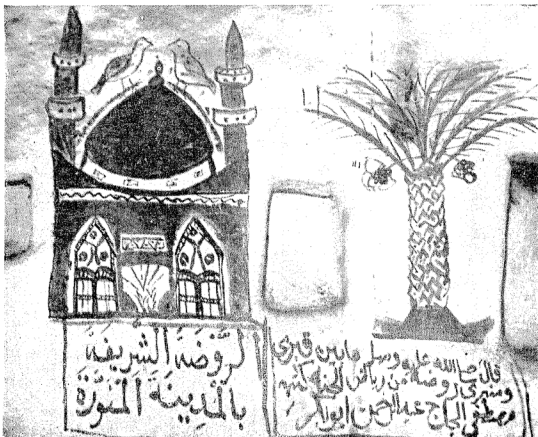 الرَّوْضَةَ الشَّرِيفَةَ
بالْمَدِينَةِ الْمُنَوَّرَةَ
قال صلى الله عليه وسلم مابين قبرى
ومنبرى روضة من رياض الجنه كتبه
مصطفى الحاج عبد الرحمن ابوبكر